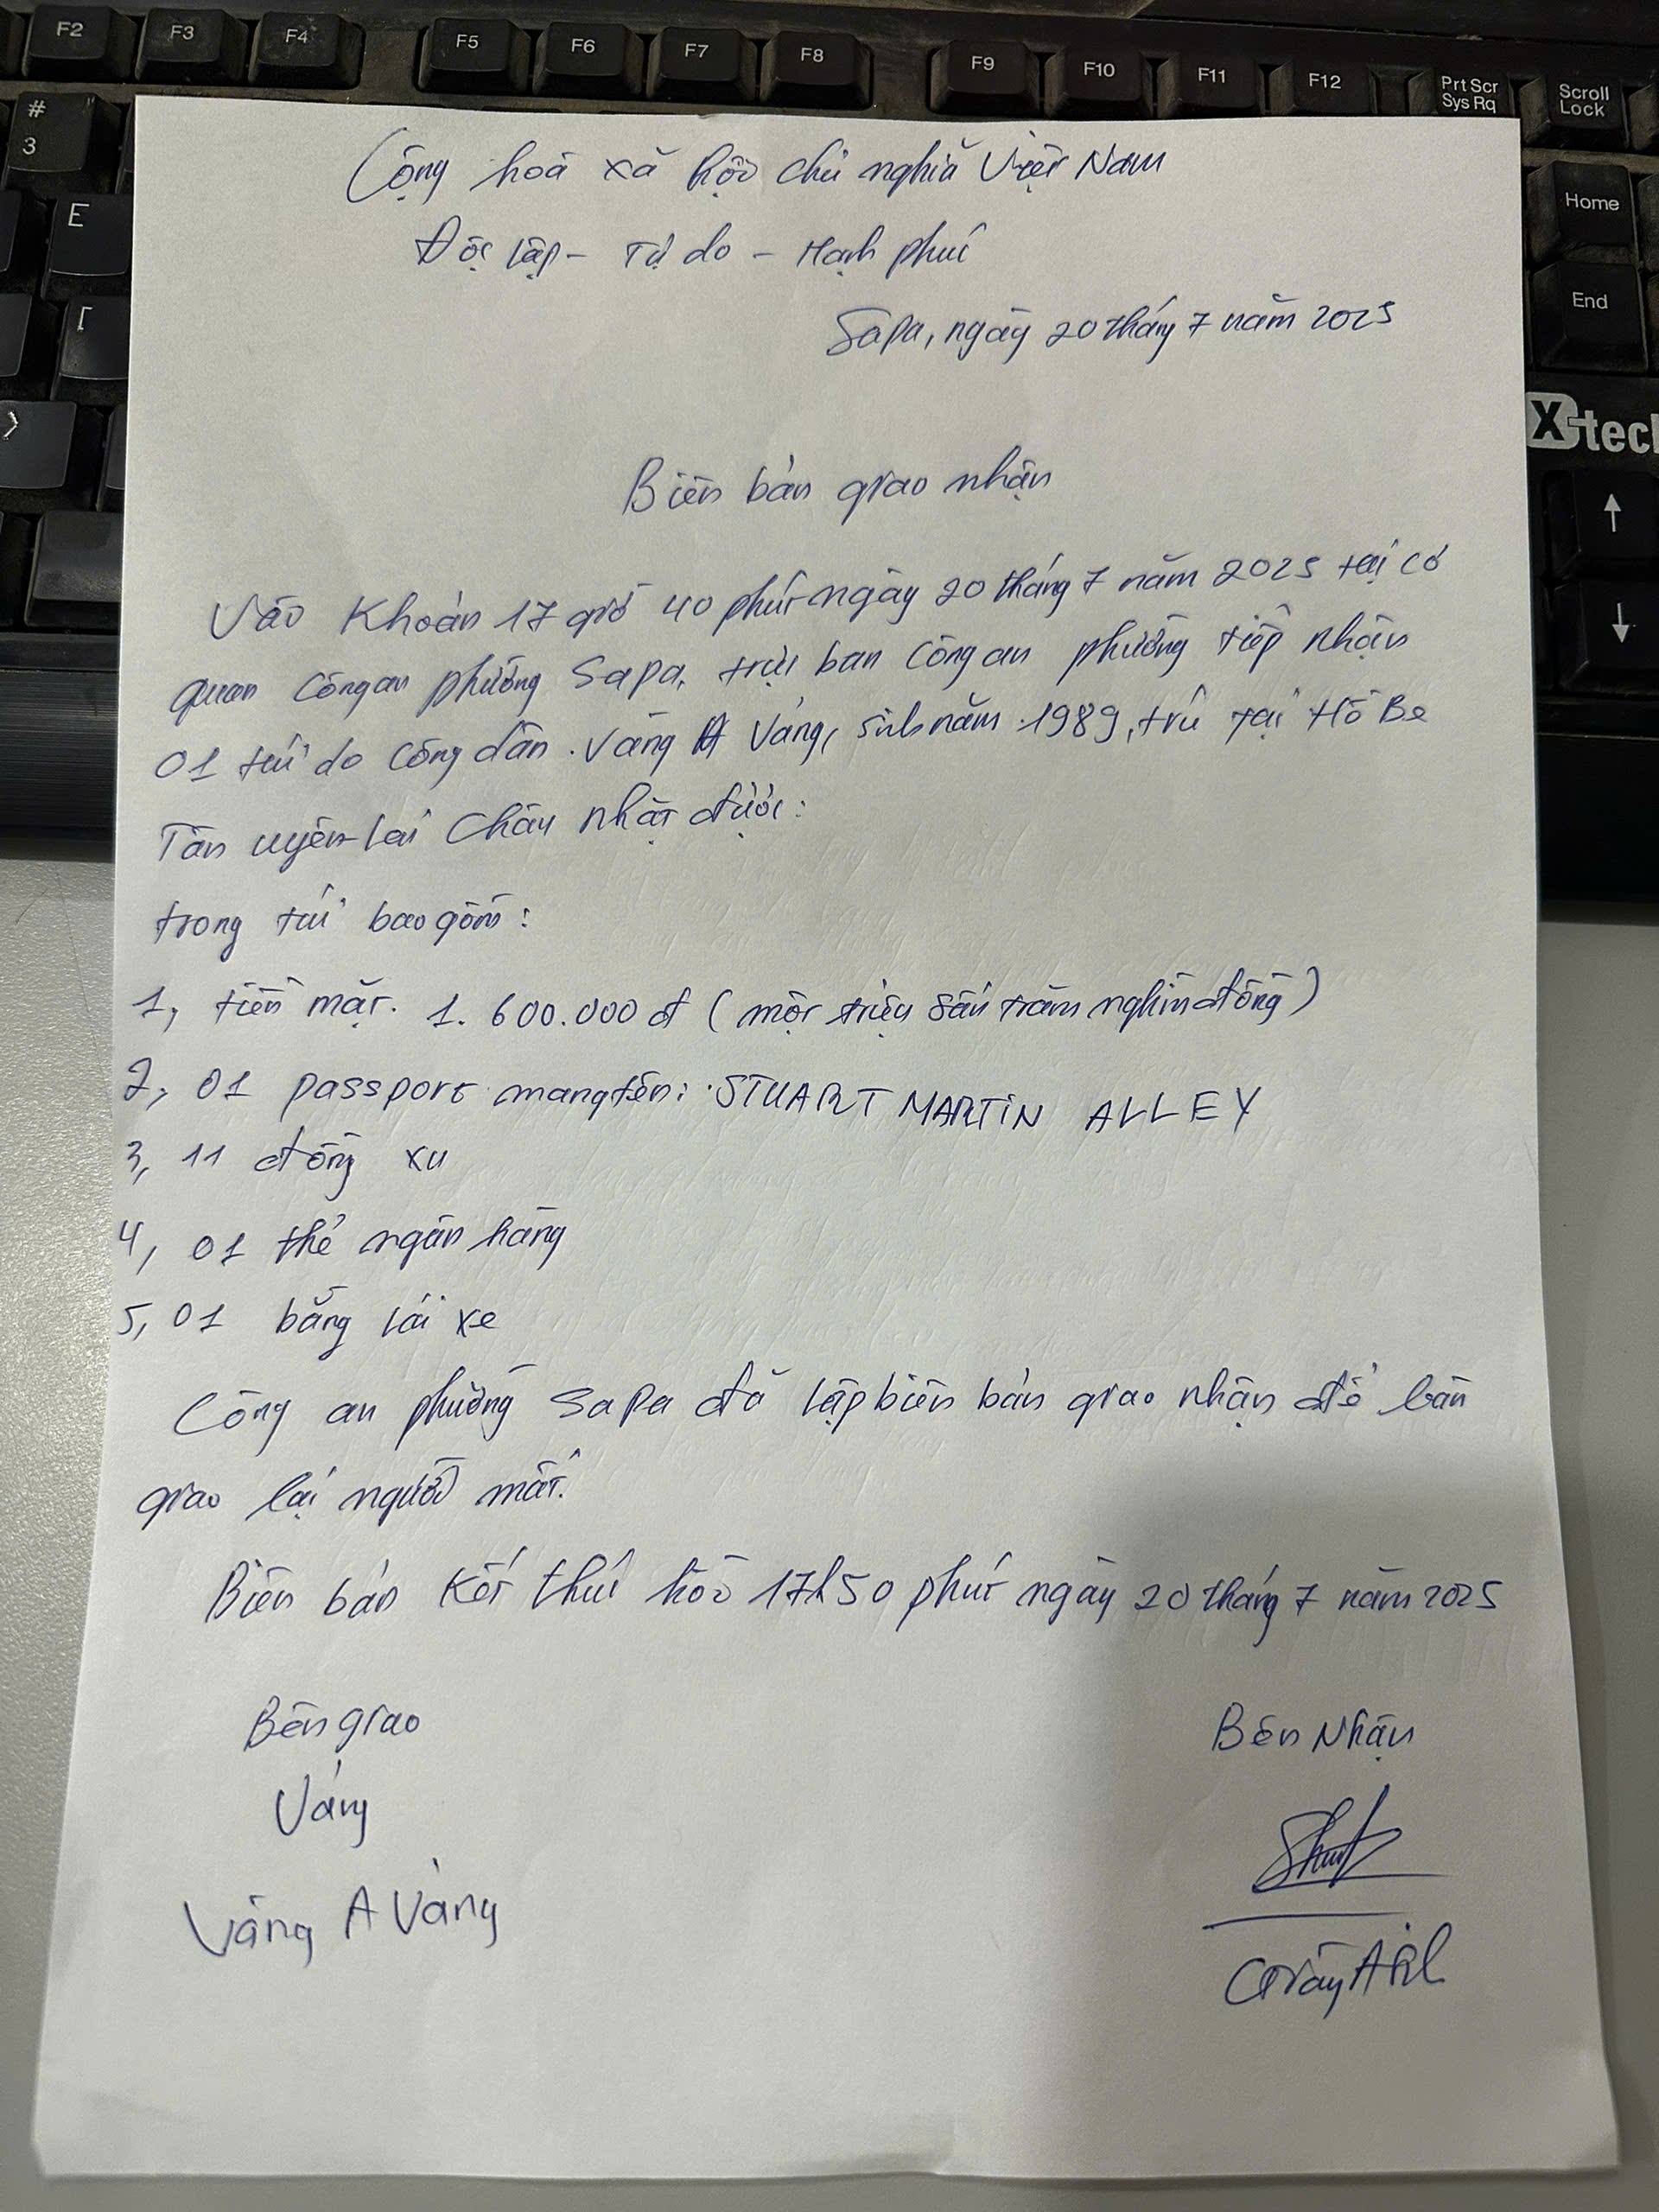 F2 F3 F4 F5 F6 F7 F8 F9 F10 F11 F12 Prt Scr Sys Rq Scroll Lock
# 3
E
[
Home
End
X-tech
Cộng hoà xã hội chủ nghĩa Việt Nam
Độc lập - Tự do - Hạnh phúc
Sapa, ngày 20 tháng 7 năm 2025
Biên bản giao nhận
Vào khoản 17 giờ 40 phút ngày 20 tháng 7 năm 2025 tại cơ
quan công an phường Sapa, trực ban công an phường tiếp nhận
01 túi do công dân. Vàng A Vảng, sinh năm 1989, trú tại Hô Be
Tân uyên - Lai Châu nhặt được:
trong túi bao gồm:
1, tiền mặt. 1.600.000 đ (một triệu sáu trăm nghìn đồng)
2, 01 passport mang tên: STUART MARTIN ALLEY
3, 11 đồng xu
4, 01 thẻ ngân hàng
5, 01 bằng lái xe
Công an phường SaPa đã lập biên bản giao nhận để bàn
giao lại người mất.
Biên bản kết thúc hồi 17h50 phút ngày 20 tháng 7 năm 2025
Bên giao
Bên Nhận
Vảng
Vàng A Vảng